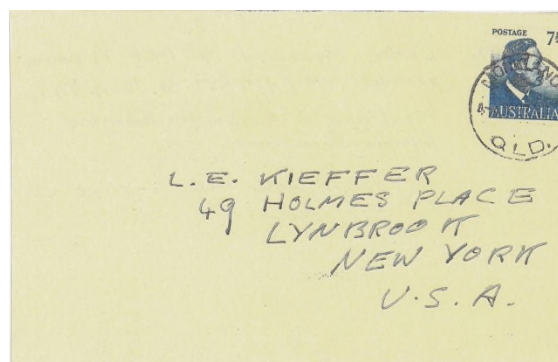 POSTAGE 7½
AUSTRALIA
QLD.
L.E. KIEFFER
49 HOLMES PLACE
LYNBROOK
NEW YORK
U.S.A.